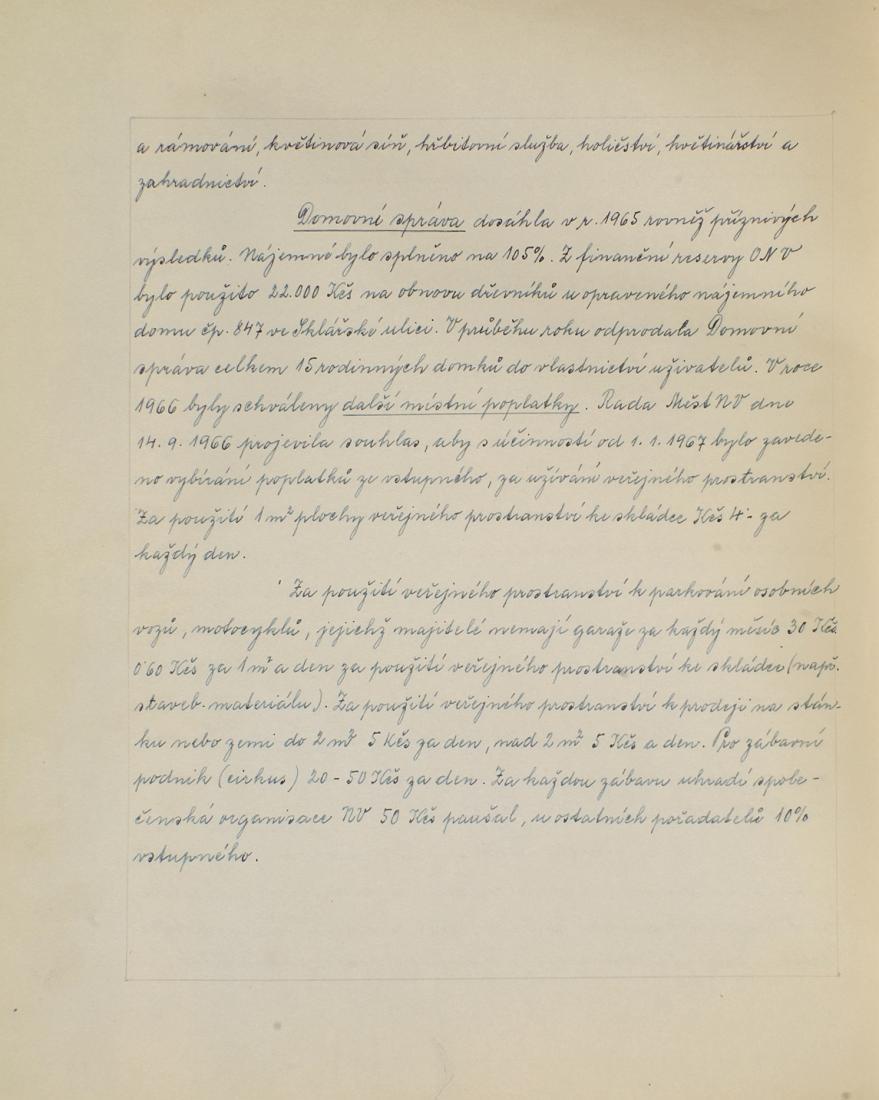 a rámování, květinová síň, hřbitovní služba, holičství, květinářství a
zahradnictví.
Domovní správa dosáhla v r. 1965 rovněž příznivých
výsledků. Nájemné bylo splněno na 105%. Z finanční reservy ONV
bylo použito 22.000 Kčs na obnovu dřevníků u opraveného nájemního
domu čp. 847 ve Sklářské ulici. V průběhu roku odprodala Domovní
správa celkem 15 rodinných domků do vlastnictví uživatelů. V roce
1966 byly schváleny další místní poplatky. Rada Měst NV dne
14. 9. 1966 projevila souhlas, aby s účinností od 1. 1. 1967 bylo zavede-
no vybírání poplatků ze vstupného, za užívání veřejného prostranství.
Za použití 1 m² plochy veřejného prostranství ke skládce Kčs 4·- za
každý den.
Za použití veřejného prostranství k parkování osobních
vozů, motocyklů, jejichž majitelé nemají garaže za každý měsíc 30 Kčs
0˙60 Kčs za 1 m² a den za použití veřejného prostranství ke skládce (např.
staveb. materiálu). Za použití veřejného prostranství k prodeji na stán-
ku nebo zemi do 2 m² 5 Kčs za den, nad 2 m² 5 Kčs a den. Pro zábavní
podnik (cirkus) 20 - 50 Kčs za den. Za každou zábavu uhradí spole-
čenská organisace NV 50 Kčs paušal, u ostatních pořadatelů 10%
vstupného.